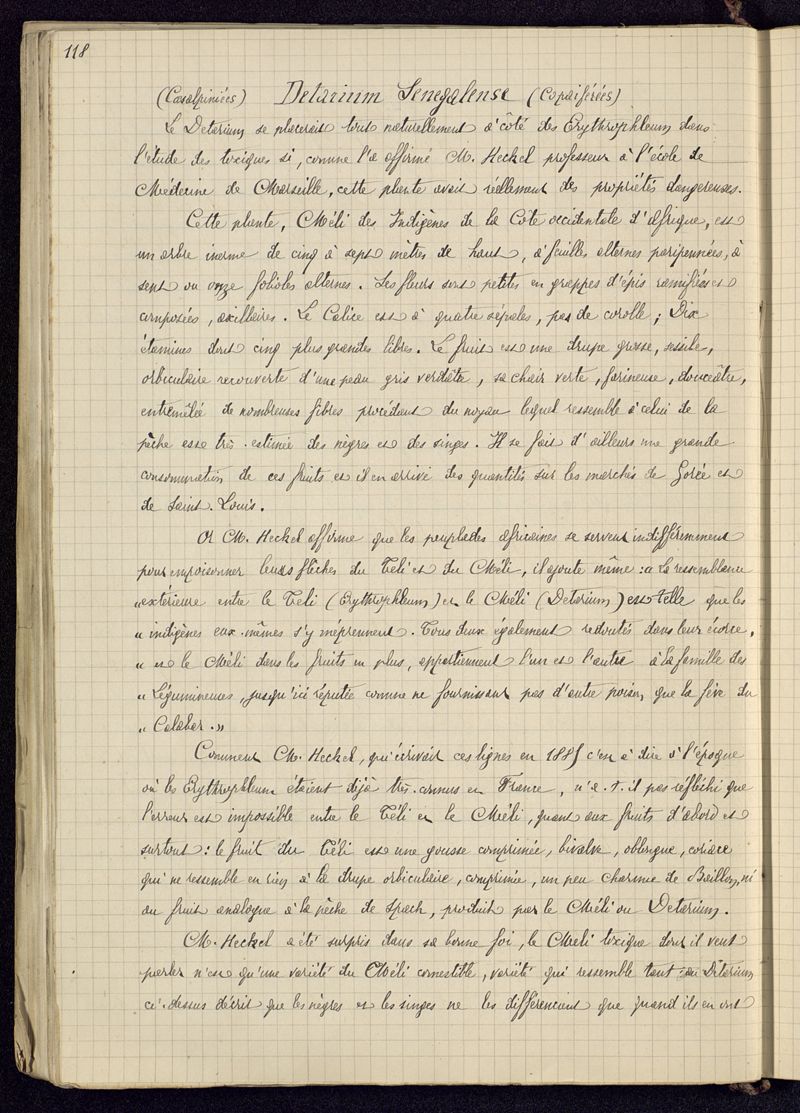 118
(Cœsalpiniées) Detarium Senegalense (Copaiférées)
Le Detarium se placerait tout naturellement à côté des Erythrophleum dans
l'étude des toxiques si, comme l'a affirmé M. Heckel professeur à l'école de
Médecine de Marseille, cette plante avait réellement des propriétés dangereuses.
Cette plante, Méli des Indigènes de la Côte occidentale d'Afrique, est
un arbre inerme de cinq à sept mètres de haut, à feuilles alternes paripennées, à
sept ou onze folioles alternes. Les fleurs sont petites en grappes d'épis ramifiées et
composées, axillaires. Le Calice est à quatre sépales, pas de corolle ; Dix
étamines dont cinq plus grandes libres. Le fruit est une drupe grosse, sessile,
orbiculaire recouverte d'une peau gris verdâtre, sa chair verte, farineuse, douceâtre,
entremêlée de nombreuses fibres procédant du noyau lequel ressemble à celui de la
pêche est très-estimée des nègres et des singes. Il se fait d'ailleurs une grande
consommation de ces fruits et il en arrive des quantités sur les marchés de Gorée et
de Saint-Louis.
Or M. Heckel affirme que les peuplades africaines se servent indifféremment
pour empoisonner leurs flèches du Téli et du Méli, il ajoute même : « La ressemblance
« extérieure entre le Teli (Erythrophleum) et le Méli (Detarium) est telle que les
« indigènes eux-mêmes s'y méprennent. Tous deux également redoutés dans leur écorce,
« et le Méli dans les fruits en plus, appartiennent l'un et l'autre à la famille des
« Légumineuses, jusqu'ici réputée comme ne fournissant pas d'autre poison, que la fève du
« Calabar. »
Comment M. Heckel, qui écrivait ces lignes en 1885 c'en à dire à l'époque
où les Erythrophleum étaient déjà très-connus en France, n'a-t-il pas réfléchi que
l'erreur est impossible entre le Téli et le Méli, quant aux fruits d'abord et
surtout : le fruit du Téli est une gousse comprimée, bivalve, oblongue, coriace
qui ne ressemble en rien à la drupe orbiculaire, comprimée, un peu charnue de Baillon, ni
au fruit analogue à la pêche de Spach, produit par le Méli ou Detarium.
M. Heckel a été surpris dans sa bonne foi, le Meli toxique dont il veut
parler n'est qu'une variété du Méli comestible, variété qui ressemble tant au Détarium
ci-dessus décrit que les nègres et les singes ne les différencient que quand ils en ont